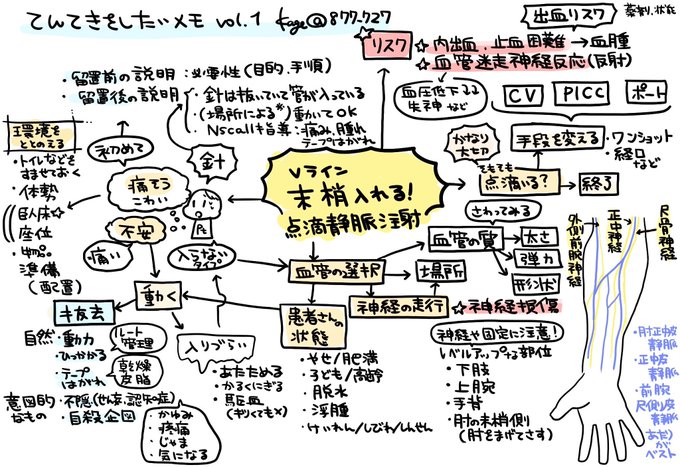 てんてきをしたいメモ vol.1 kage@877-727
リスク
出血リスク
薬剤、状態
☆内出血、止血困難→血腫
☆血管迷走神経反応(反射)
血圧低下よる
失神など
・留置前の説明：必要性(目的、手順)
・留置後の説明
・針は抜いていて管が入っている
・(場所による*)動かしてOK
・Nscall指導：痛み、腫れ
テープはがれ
CV
PICC
ポート
環境を
ととのえる
・トイレなどを
すませておく
・体勢
臥床☆
座位
・物品
準備
(配置)
はじめて
針
痛そう
こわい
不安
痛い
Pt
入らない
タイプ
Vライン
末梢入れる!
点滴静脈注射
かなり
大切
手段を変える
・ワンショット
・経口
など
そもそも
点滴いる?
終了
さわってみる
血管の質
太さ
弾力
形状
血管の選択
場所
神経の走行
☆神経損傷
神経や固定に注意!
レベルアップな部位
・下肢
・上腕
・手背
・肘の末梢側
(肘をまげてさす)
外側前腕神経
正中神経
尺骨神経
・肘正中皮
静脈
・正中皮
静脈
・前腕
尺側皮
静脈
あたり
が
ベスト
動く
抜去
自然
・動力
・ひっかかる
・テープ
はがれ
ルート
管理
乾燥
皮脂
意図的
なもの
・不穏(せん妄、認知症)
・自殺企図
・かゆみ
・疼痛
・じゃま
・気になる
入りづらい
・あたためる
・かるくにぎる
・駆血
(キツくても×)
患者さんの
状態
・やせ/肥満
・子ども/高齢
・脱水
・浮腫
・けいれん/しびれ/しんせん